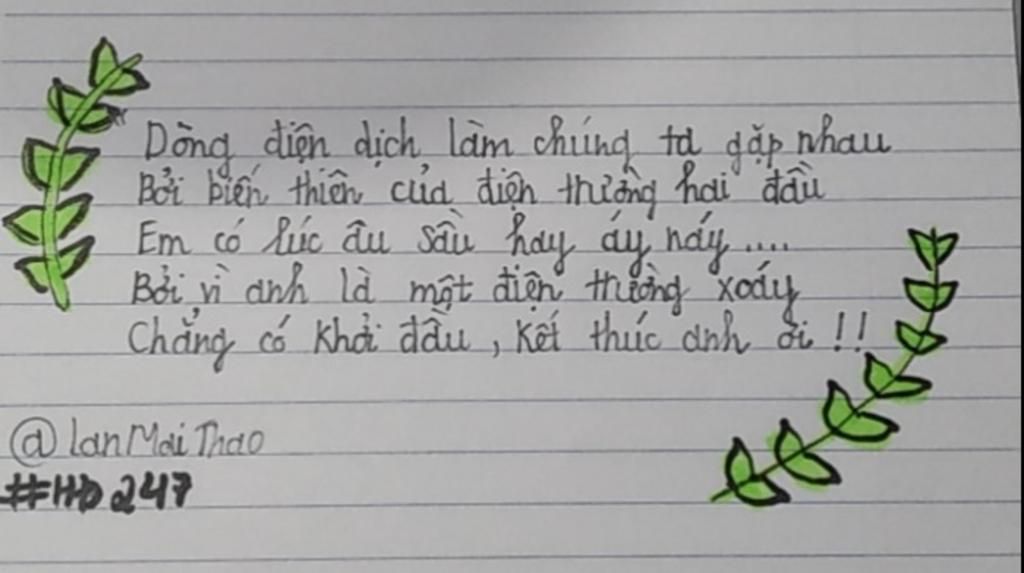 Dòng điện dịch làm chúng ta gặp nhau
Bởi biến thiên của điện trường hai đầu
Em có lúc âu sầu hay áy náy....
Bởi vì anh là một điện trường xoáy
Chẳng có khởi đầu, kết thúc anh ơi !!
@lanMaiThao
#HD247